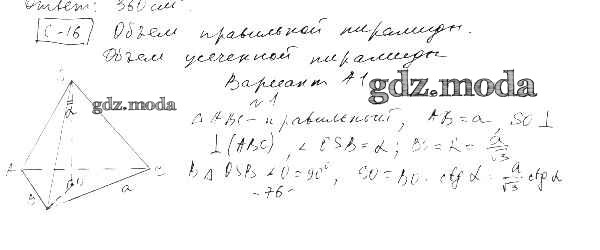 Ответ: 360 см
С-16 Объем правильной пирамиды.
Объем усеченной пирамиды
Вариант А1
gdz.moda
gdz.moda
№1
△ABC - правильный, AB = a SO ⊥
⊥ (ABC), ∠ OSB = α; BO = R = a/√3
В △ OSB ∠O = 90° SO = BO · ctg α = a/√3 ctg α
-76-
S
α
A
O
C
B
a